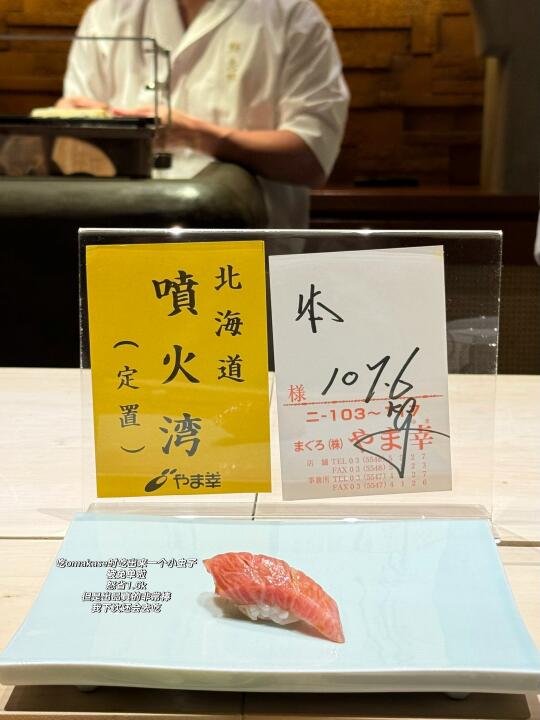 北海道
噴火湾
（定置）
やま幸
本
様
107.6
ニ-103~
まぐろ(株)やま幸
店舗 TEL03
FAX03(5548)
事務所 TEL03(5547)
FAX03(5547)4126
吃omakase时吃出来一个小虫子
被免单啦
怒省1.6k
但是出品真的非常棒
我下次还会去吃